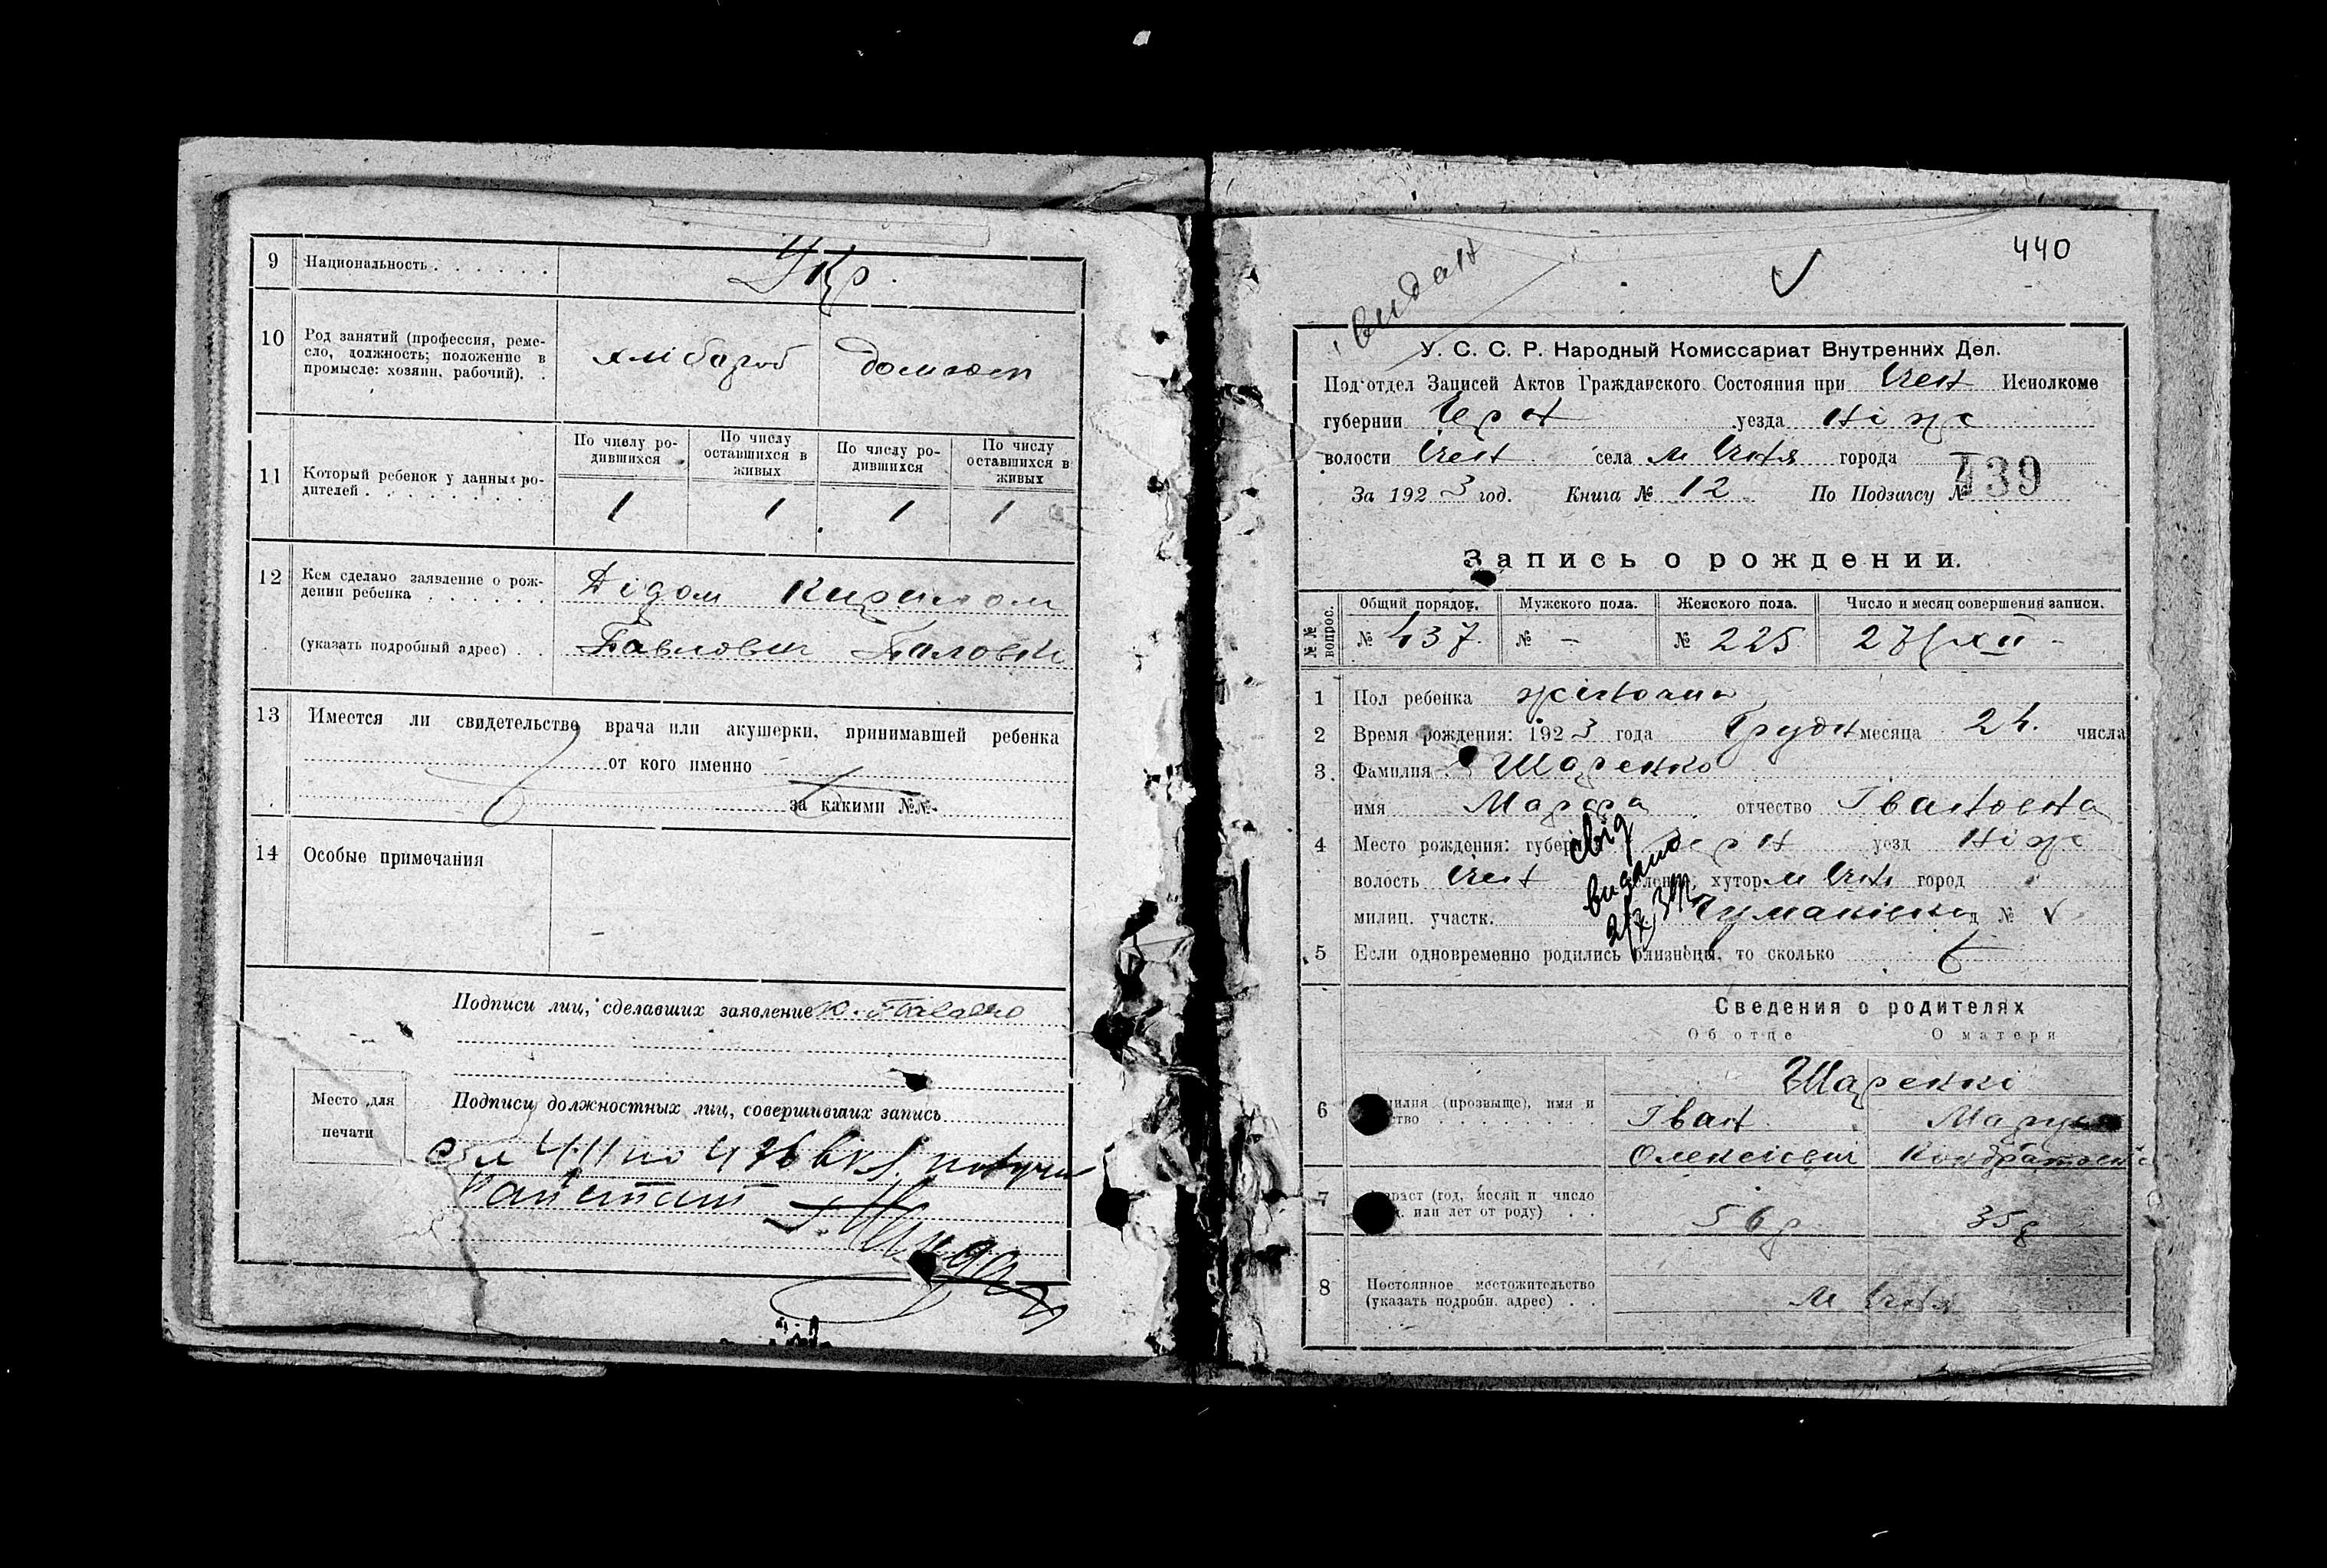 9 Национальность . . . . . . Укр.
10 Род занятий (профессия, реме-
сло, должность; положение в
промысле: хозяин, рабочий). . хлібороб домгосп
11 Который ребенок у данных ро-
дителей . . . . . . . . .
По числу ро-
дившихся
По числу
оставшихся в
живых
По числу ро-
дившихся
По числу
оставшихся в
живых
1 1 1 1
12 Кем сделано заявление о рож-
дении ребенка . . . . . . Дідом Кирилом
(указать подробный адрес) . . Павлович
13 Имеется ли свидетельство врача или акушерки, принимавшей ребенка
от кого именно
за какими №№
14 Особые примечания
Подписи лиц, сделавших заявление К.
Место для
печати
Подписи должностных лиц, совершивших запись
440
видан
У. С. С. Р. Народный Комиссариат Внутренних Дел.
Под'отдел Записей Актов Гражданского Состояния при Ічен Исполкоме
губернии Черн уезда Ніж
волости Ічен села м Ічня города
За 1923 год. Книга № 12 По Подзагсу № 439
Запись о рождении.
№№ вопрос.
Общий порядов. Мужского пола. Женского пола. Число и месяц совершения записи.
№ 437 № - № 225 27/XII -
1 Пол ребенка жіночий
2 Время рождения: 1923 года Грудн месяца 24. числа
3 Фамилия Шаренко
имя Марфа отчество Івановна
4 Место рождения: губер Черн уезд Ніж
волость Ічен хутор м Ічня город
милиц. участк. №
свід
видано
5 Если одновременно родились близнецы, то сколько
Сведения о родителях
Об отце О матери
Шаренкі
6 (прозвище), имя и
Іван Маруся
Олексієвич Кондратовна
7 (год, месяц и число
или лет от роду) . . 56 р 35 р
8 Постоянное местожительство
(указать подробн. адрес) . . м Ічня